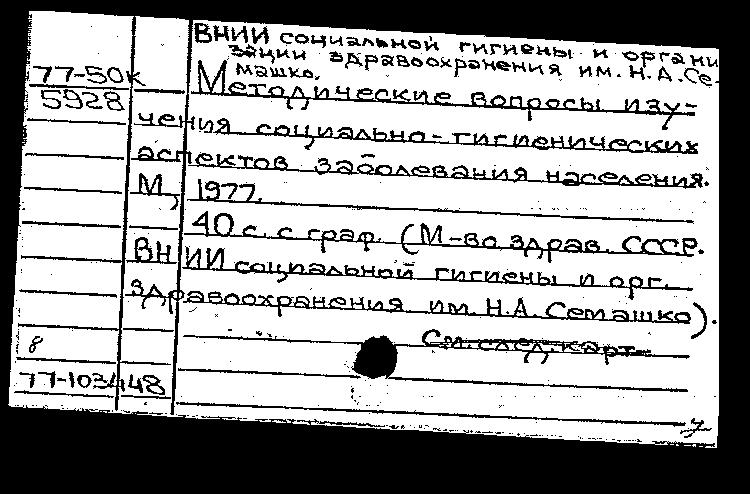 ВНИИ социальной гигиены и органи
зации здравоохранения им. Н.А. Се-
машко.
77-50к
5928
Методические вопросы изу-
чения социально-гигиенических
аспектов заболевания населения.
М, 1977.
40 с. с граф. (М-во здрав. СССР.
ВНИИ социальной гигиены и орг.
здравоохранения им. Н.А. Семашко).
См. след. карт.
8
77-103448